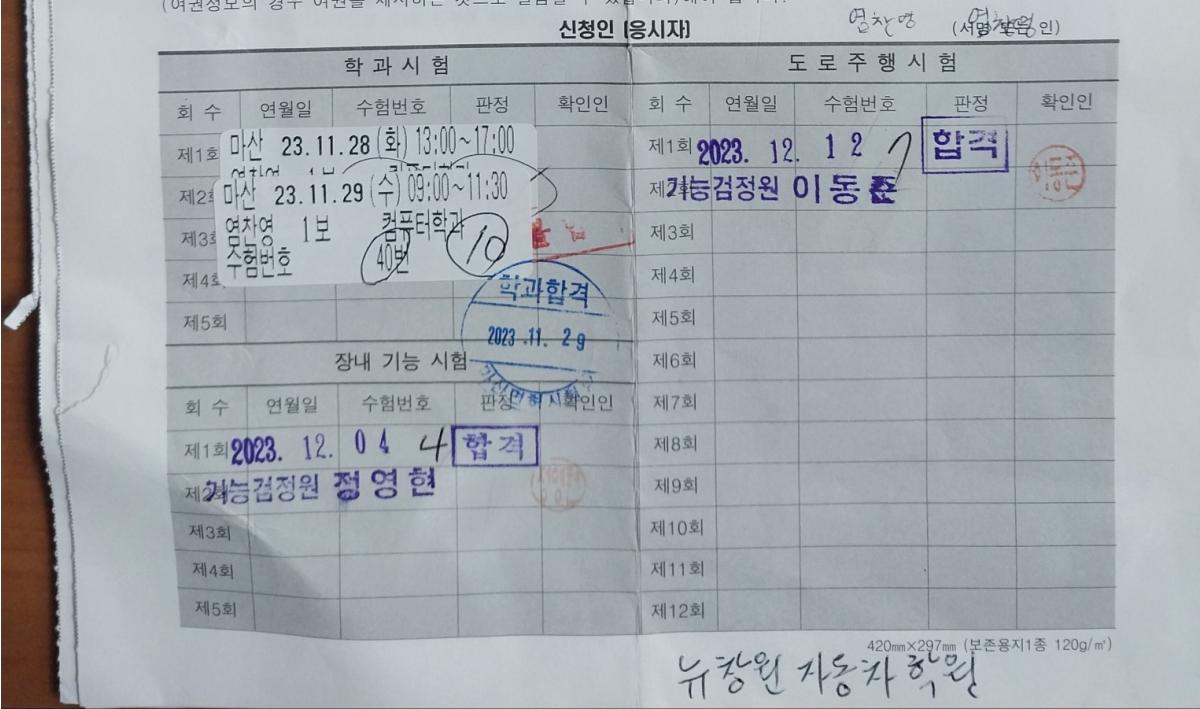 신청인 (응시자) 염찬영 염찬영 (서명 또는 인)
학 과 시 험
회 수 연월일 수험번호 판정 확인인
제1회 마산 23.11.28 (화) 13:00~17:00
제2회 마산 23.11.29 (수) 09:00~11:30
제3회 염찬영 1보 컴퓨터학과 10
수험번호 40번
제4회
학과합격
2023.11.29
제5회
장내 기능 시험
회 수 연월일 수험번호 판정 확인인
제1회 2023. 12. 04 4 합격
제2회 기능검정원 정영현
제3회
제4회
제5회
도 로 주 행 시 험
회 수 연월일 수험번호 판정 확인인
제1회 2023. 12. 12 7 합격
제2회 기능검정원 이동준
이동준
제3회
제4회
제5회
제6회
제7회
제8회
제9회
제10회
제11회
제12회
420㎜×297㎜ (보존용지1종 120g/㎡)
뉴창원 자동차 학원